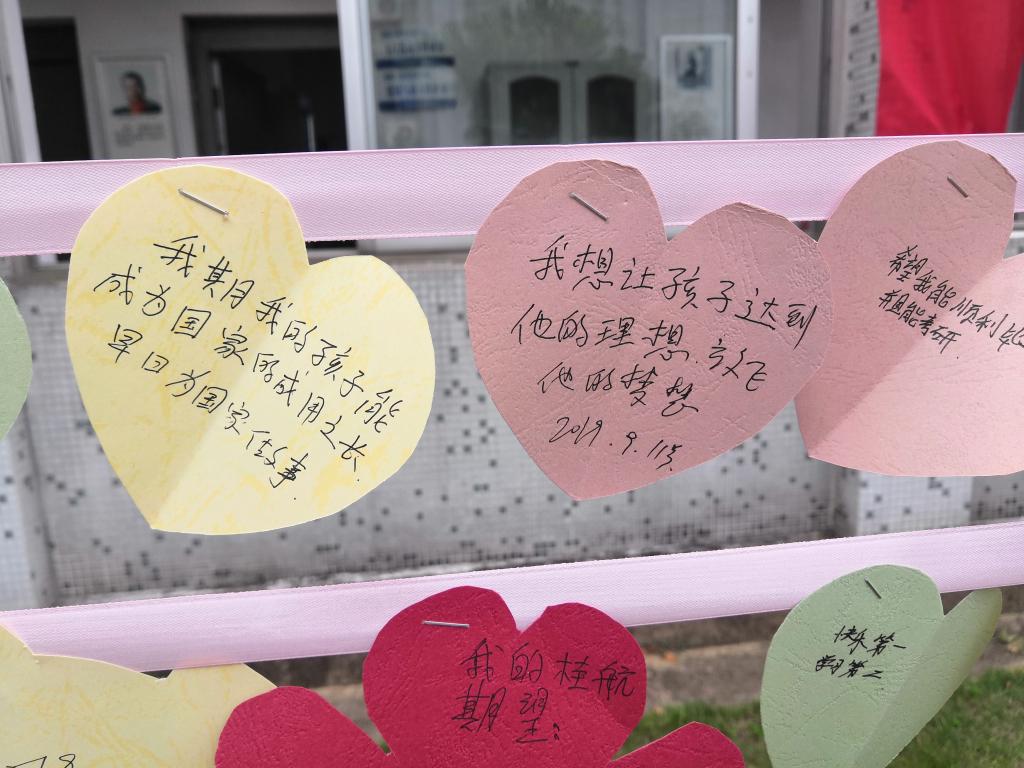 我期我的孩子能
成为国家的成用之长.
早日为国家做事.
我想让孩子达到
他的理想.放飞
他的梦想
2019.9.11号
希望我能顺利毕
祖能考研.
我的桂航
期望:
快乐第一
学习第二